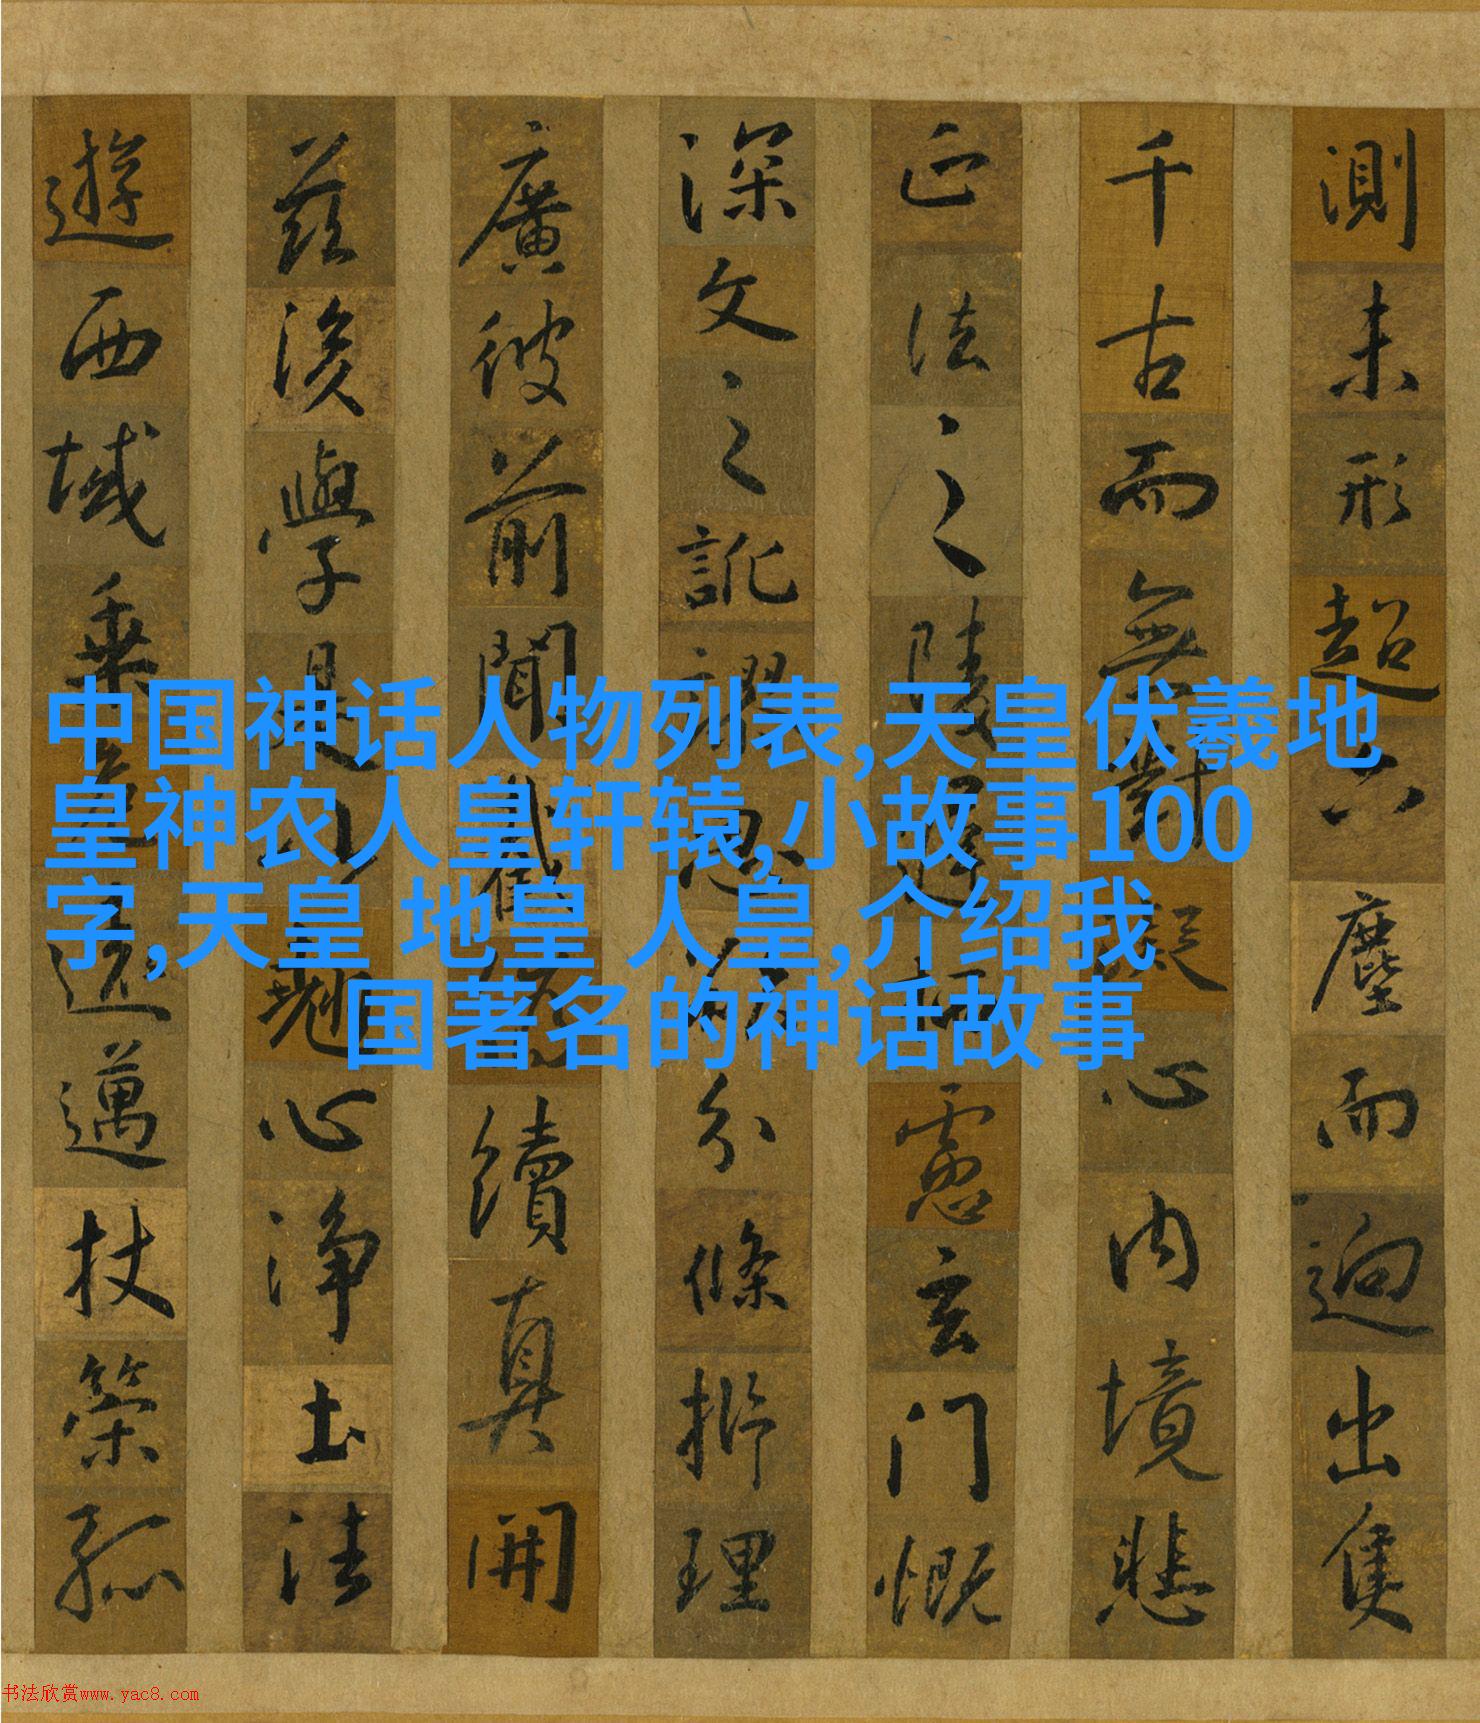 測未形超六塵而迥出隻
千古而無對凝心內境悲
正法之陵遲栖慮玄門慨
深文之訛謬思欲分條析理
廣彼前聞截偽續真開
茲後學是以翹心淨土法
遊西域乘危遠邁杖策孤
中国神话人物列表,天皇伏羲地
皇神农人皇轩辕,小故事100
字,天皇 地皇 人皇,介绍我
国著名的神话故事
书法欣赏www.yac8.com